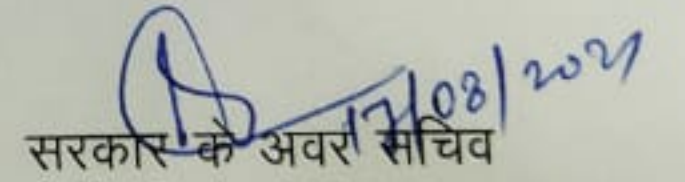 17/08/2021
सरकार के अवर सचिव